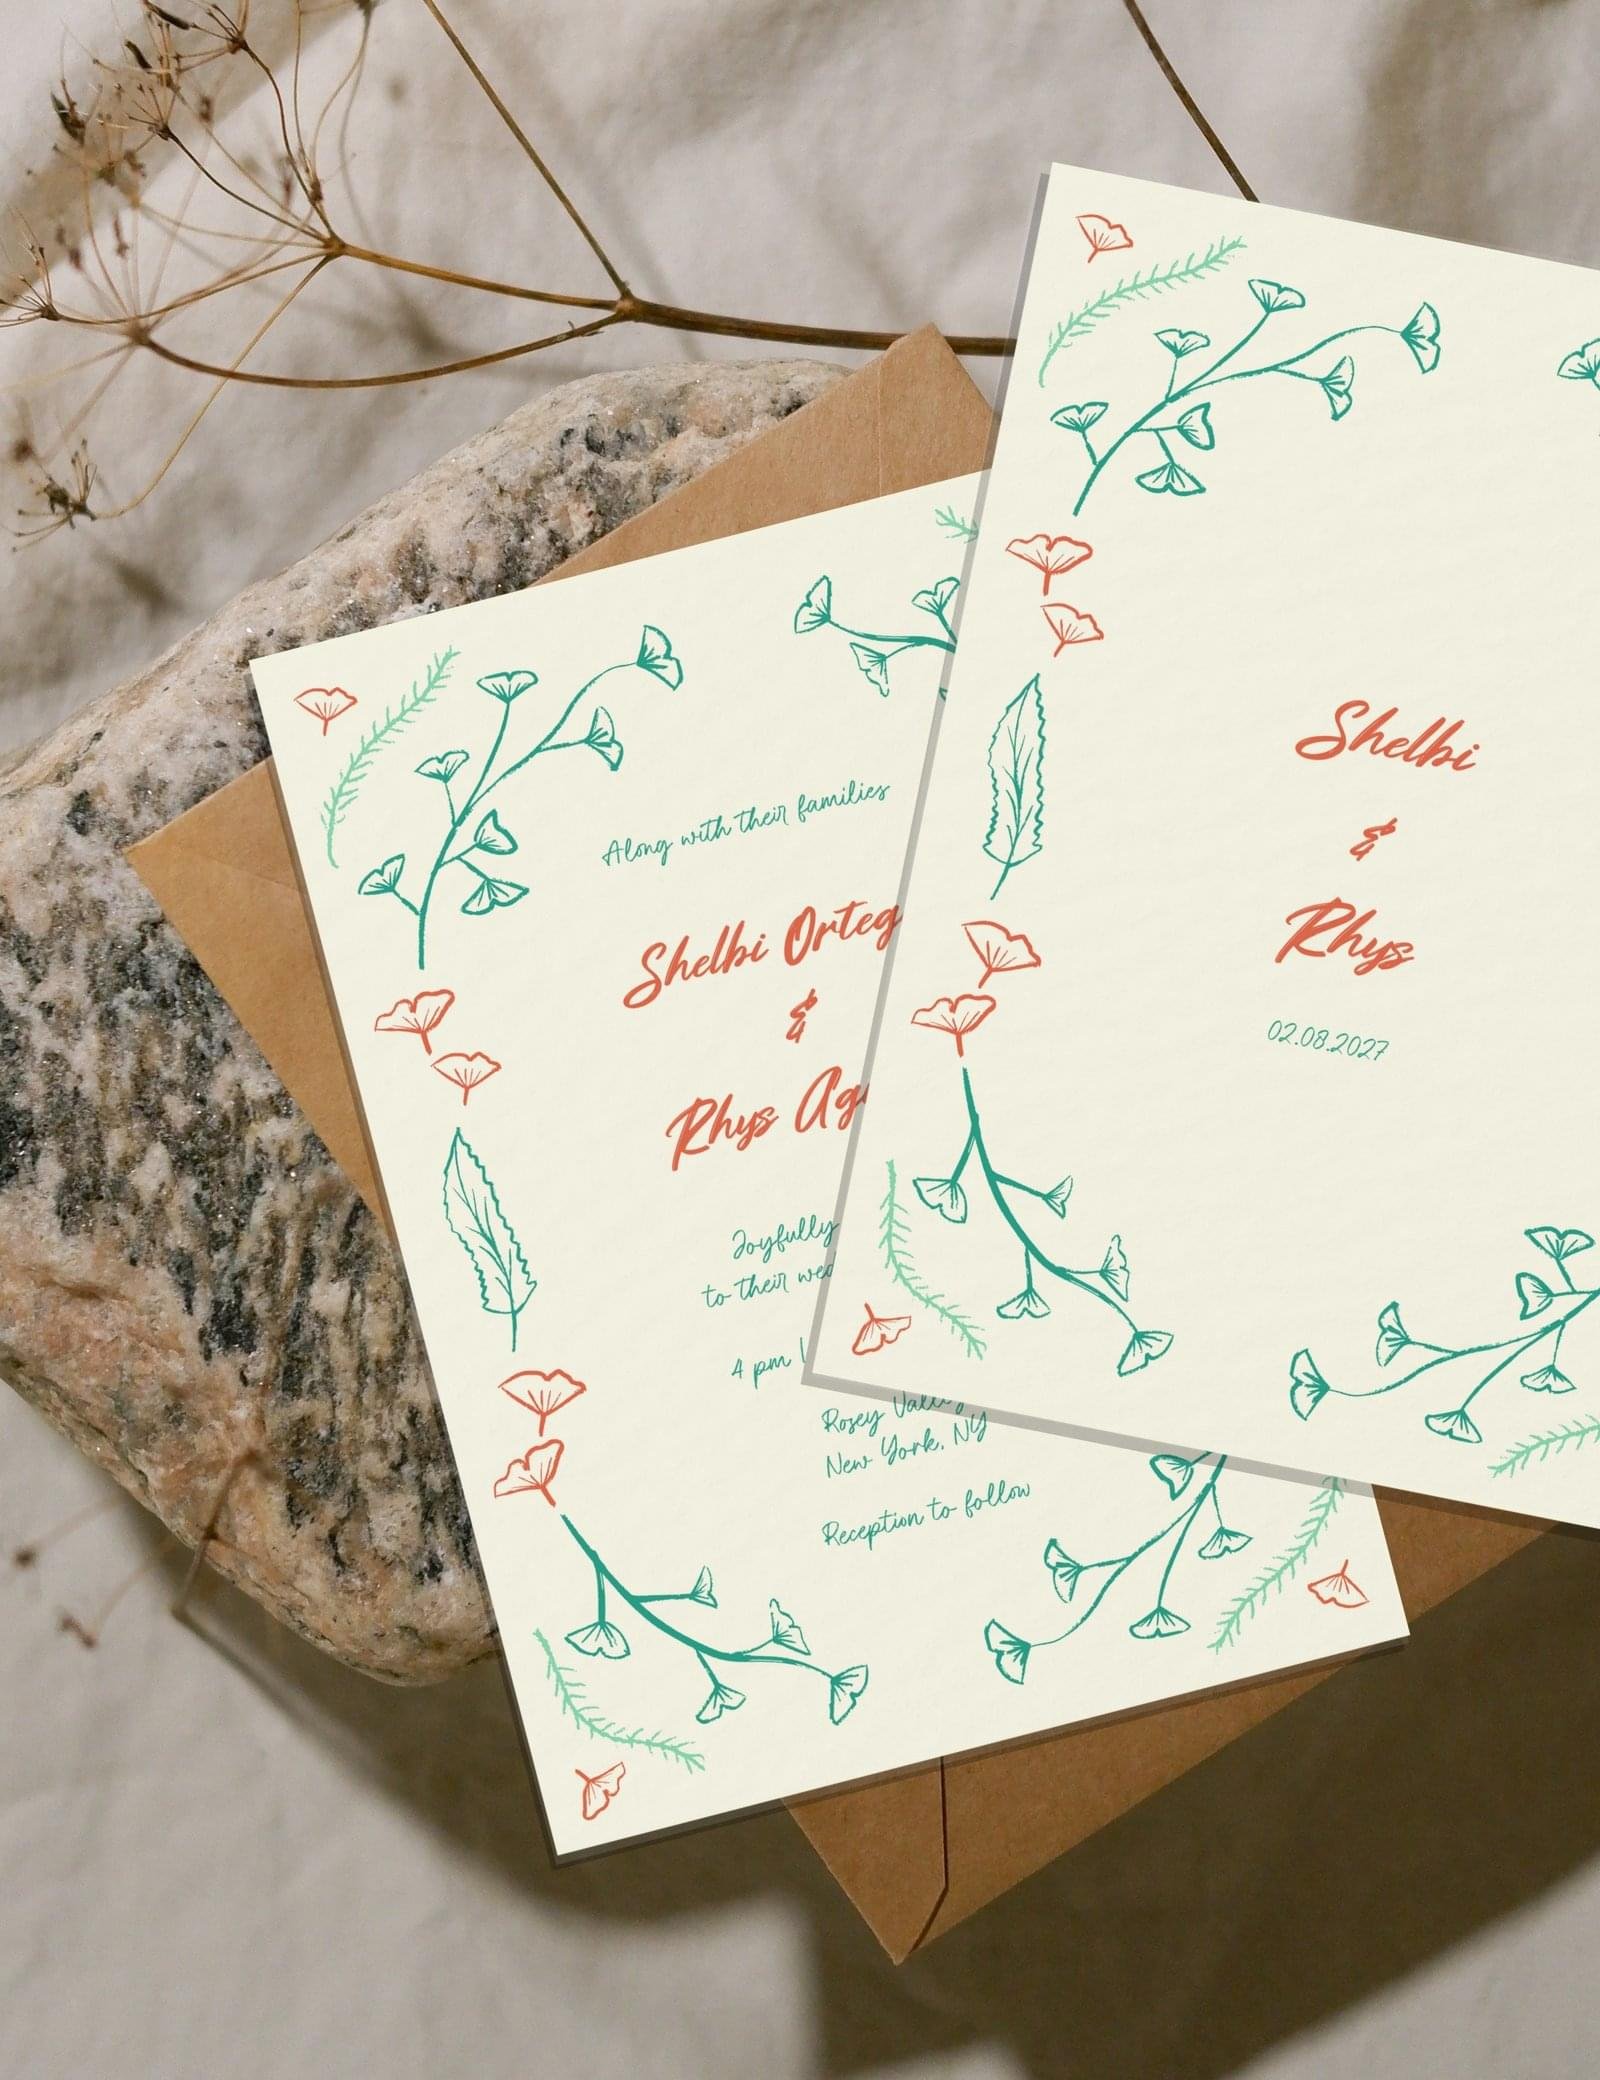 Along with their families
Shelbi
&
Rhys
Joyfully
to their
4 pm
Rosey
New York, NY
Reception to follow
Shelbi
&
Rhys
02.08.2027